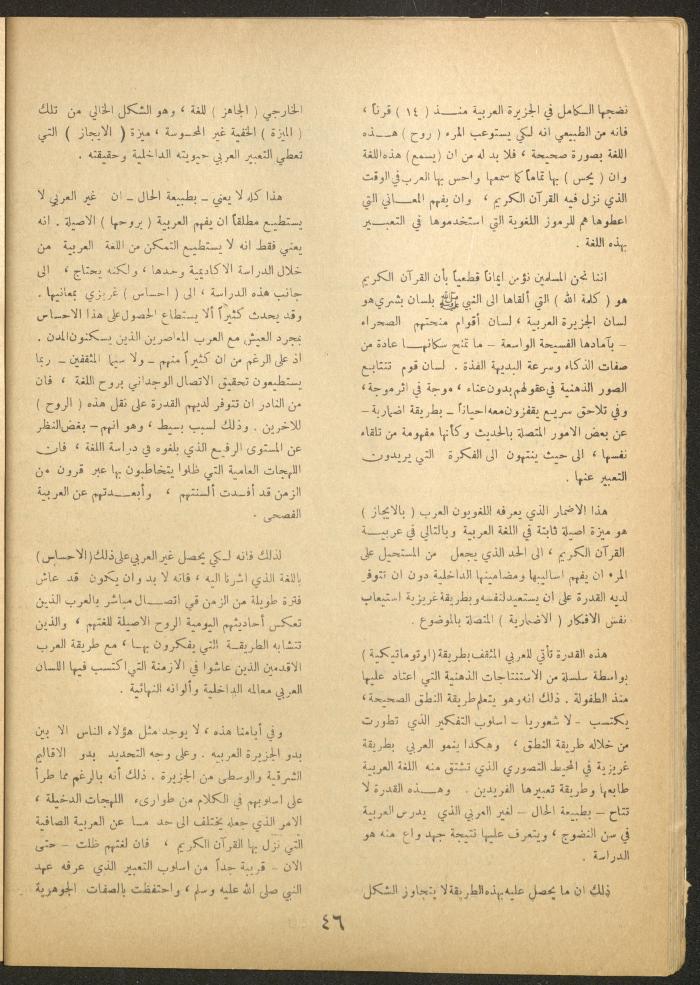 نضجها الكامل في الجزيرة العربية منـــذ ( ١٤ ) قرناً ،
فانه من الطبيعي انه لكي يستوعب المرء ( روح ) هـــذه
اللغة بصورة صحيحة ، فلا بد له من ان (يسمع) هذه اللغة
وان ( يحس ) بها تماماً كما سمعها واحس بها العرب في الوقت
الذي نزل فيه القرآن الكريم ، وان يفهم المعــاني التي
اعطوها هم للرموز اللغوية التي استخدموها في التعبـــير
بهذه اللغة .
اننا نحن المسلمين نؤمن ايماناً قطعياً بأن القرآن الكريم
هو ( كلمة الله ) التي ألقاها الى النبي ﷺ بلسان بشري هو
لسان الجزيرة العربية ، لسان أقوام منحتهم الصحراء
– بآمادها الفسيحة الواسعة – ما تمنح سكانهــا عادة من
صفات الذكاء وسرعة البديهة الفذة . لسان قوم تتتابع
الصور الذهنية في عقولهم بدون عناء ، موجة في اثر موجة ،
وفي تلاحق سريع يقفزون معه احياناً – بطريقة اضمارية –
عن بعض الامور المتصلة بالحديث وكأنها مفهومة من تلقاء
نفسها ، الى حيث ينتهون الى الفكرة التي يريدون
التعبير عنها .
هذا الاضمار الذي يعرفه اللغويون العرب ( بالايجاز )
هو ميزة اصيلة ثابتة في اللغة العربية وبالتالي في عربيــة
القرآن الكريم ، الى الحد الذي يجعل من المستحيل على
المرء ان يفهم اساليبها ومضامينها الداخلية دون ان تتوفر
لديه القدرة على ان يستعيد لنفسه وبطريقة غريزية استيعاب
نفس الافكار ( الاضمارية ) المتصلة بالموضوع .
هذه القدرة تأتي للعربي المثقف بطريقة (اوتوماتيكية )
بواسطة سلسلة من الاستنتاجات الذهنية التي اعتاد عليها
منذ الطفولة . ذلك انه وهو يتعلم طريقة النطق الصحيحة ،
يكتسب – لا شعوريا – اسلوب التفكير الذي تطورت
من خلاله طريقة النطق ، وهكذا ينمو العربي بطريقة
غريزية في المحيط التصوري الذي تشتق منه اللغة العربية
طابعها وطريقة تعبيرها الفريدين . وهــذه القدرة لا
تتاح – بطبيعة الحال – لغير العربي الذي يدرس العربية
في سن النضوج ، ويتعرف عليها نتيجة جهد واع منه هو
الدراسة .
ذلك ان ما يحصل عليه بهذه الطريقة لا يتجاوز الشكل
الخارجي ( الجاهز ) للغة ، وهو الشكل الخالي من تلك
( الميزة ) الخفية غير المحسوسة ، ميزة ( الايجاز ) التي
تعطي التعبير العربي حيويته الداخلية وحقيقته .
هذا كله لا يعني – بطبيعة الحال – ان غير العربي لا
يستطيع مطلقاً ان يفهم العربية ( بروحها ) الاصيلة . انه
يعني فقط انه لا يستطيع التمكن من اللغة العربية من
خلال الدراسة الاكاديمية وحدها ، ولكنه يحتاج ، الى
جانب هذه الدراسة ، الى ( احساس ) غريزي بمعانيها .
وقد يحدث كثيراً ألا يستطاع الحصول على هذا الاحساس
بمجرد العيش مع العرب المعاصرين الذين يسكنون المدن .
اذ على الرغم من ان كثيراً منهم – ولا سيما المثقفين – ربما
يستطيعون تحقيق الاتصال الوجداني بروح اللغة ، فان
من النادر ان تتوفر لديهم القدرة على نقل هذه ( الروح )
للآخرين . وذلك لسبب بسيط ، وهو انهم – بغض النظر
عن المستوى الرفيع الذي بلغوه في دراسة اللغة ، فان
اللهجات العامية التي ظلوا يتخاطبون بها عبر قرون من
الزمن قد أفسدت ألسنتهم ، وأبعــدتهم عن العربية
الفصحى .
لذلك فانه لــكي يحصل غير العربي على ذلك (الاحساس)
باللغة الذي اشرنا اليه ، فانه لا بد وان يكون قد عاش
فترة طويلة من الزمن في اتصـــال مباشر بالعرب الذين
تعكس أحاديثهم اليومية الروح الاصيلة للغتهم ، والذين
تتشابه الطريقــة التي يفكرون بهـا ، مع طريقة العرب
الاقدمين الذين عاشوا في الازمنة التي اكتسب فيها اللسان
العربي معالمه الداخلية وألوانه النهائية .
وفي أيامنا هذه ، لا يوجد مثل هؤلاء الناس الا بين
بدو الجزيرة العربيه . وعلى وجه التحديد بدو الاقاليم
الشرقية والوسطى من الجزيرة . ذلك أنه بالرغم مما طرأ
على اسلوبهم في الكلام من طوارىء اللهجات الدخيلة ،
الامر الذي جعله يختلف الى حد مــا عن العربية الصافية
التي نزل بها القرآن الكريم ، فان لغتهم ظلت – حتى
الان – قريبة جداً من اسلوب التعبير الذي عرفه عهد
النبي صلى الله عليه وسلم ، واحتفظت بالصفات الجوهرية
٤٦